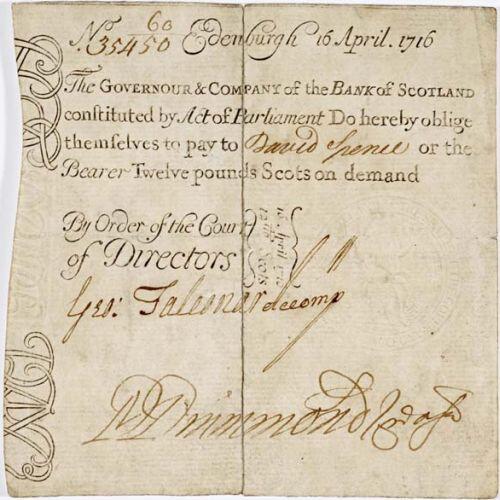 60
No. 35450 Edenburgh 16 April. 1716
The GOVERNOUR & COMPANY of the BANK of SCOTLAND
constituted by Act of Parliament Do hereby oblige
themselves to pay to David Spence or the
Bearer Twelve pounds Scots on demand
By Order of the Court
of Directors
16 April 1716
Geo:
Drummond